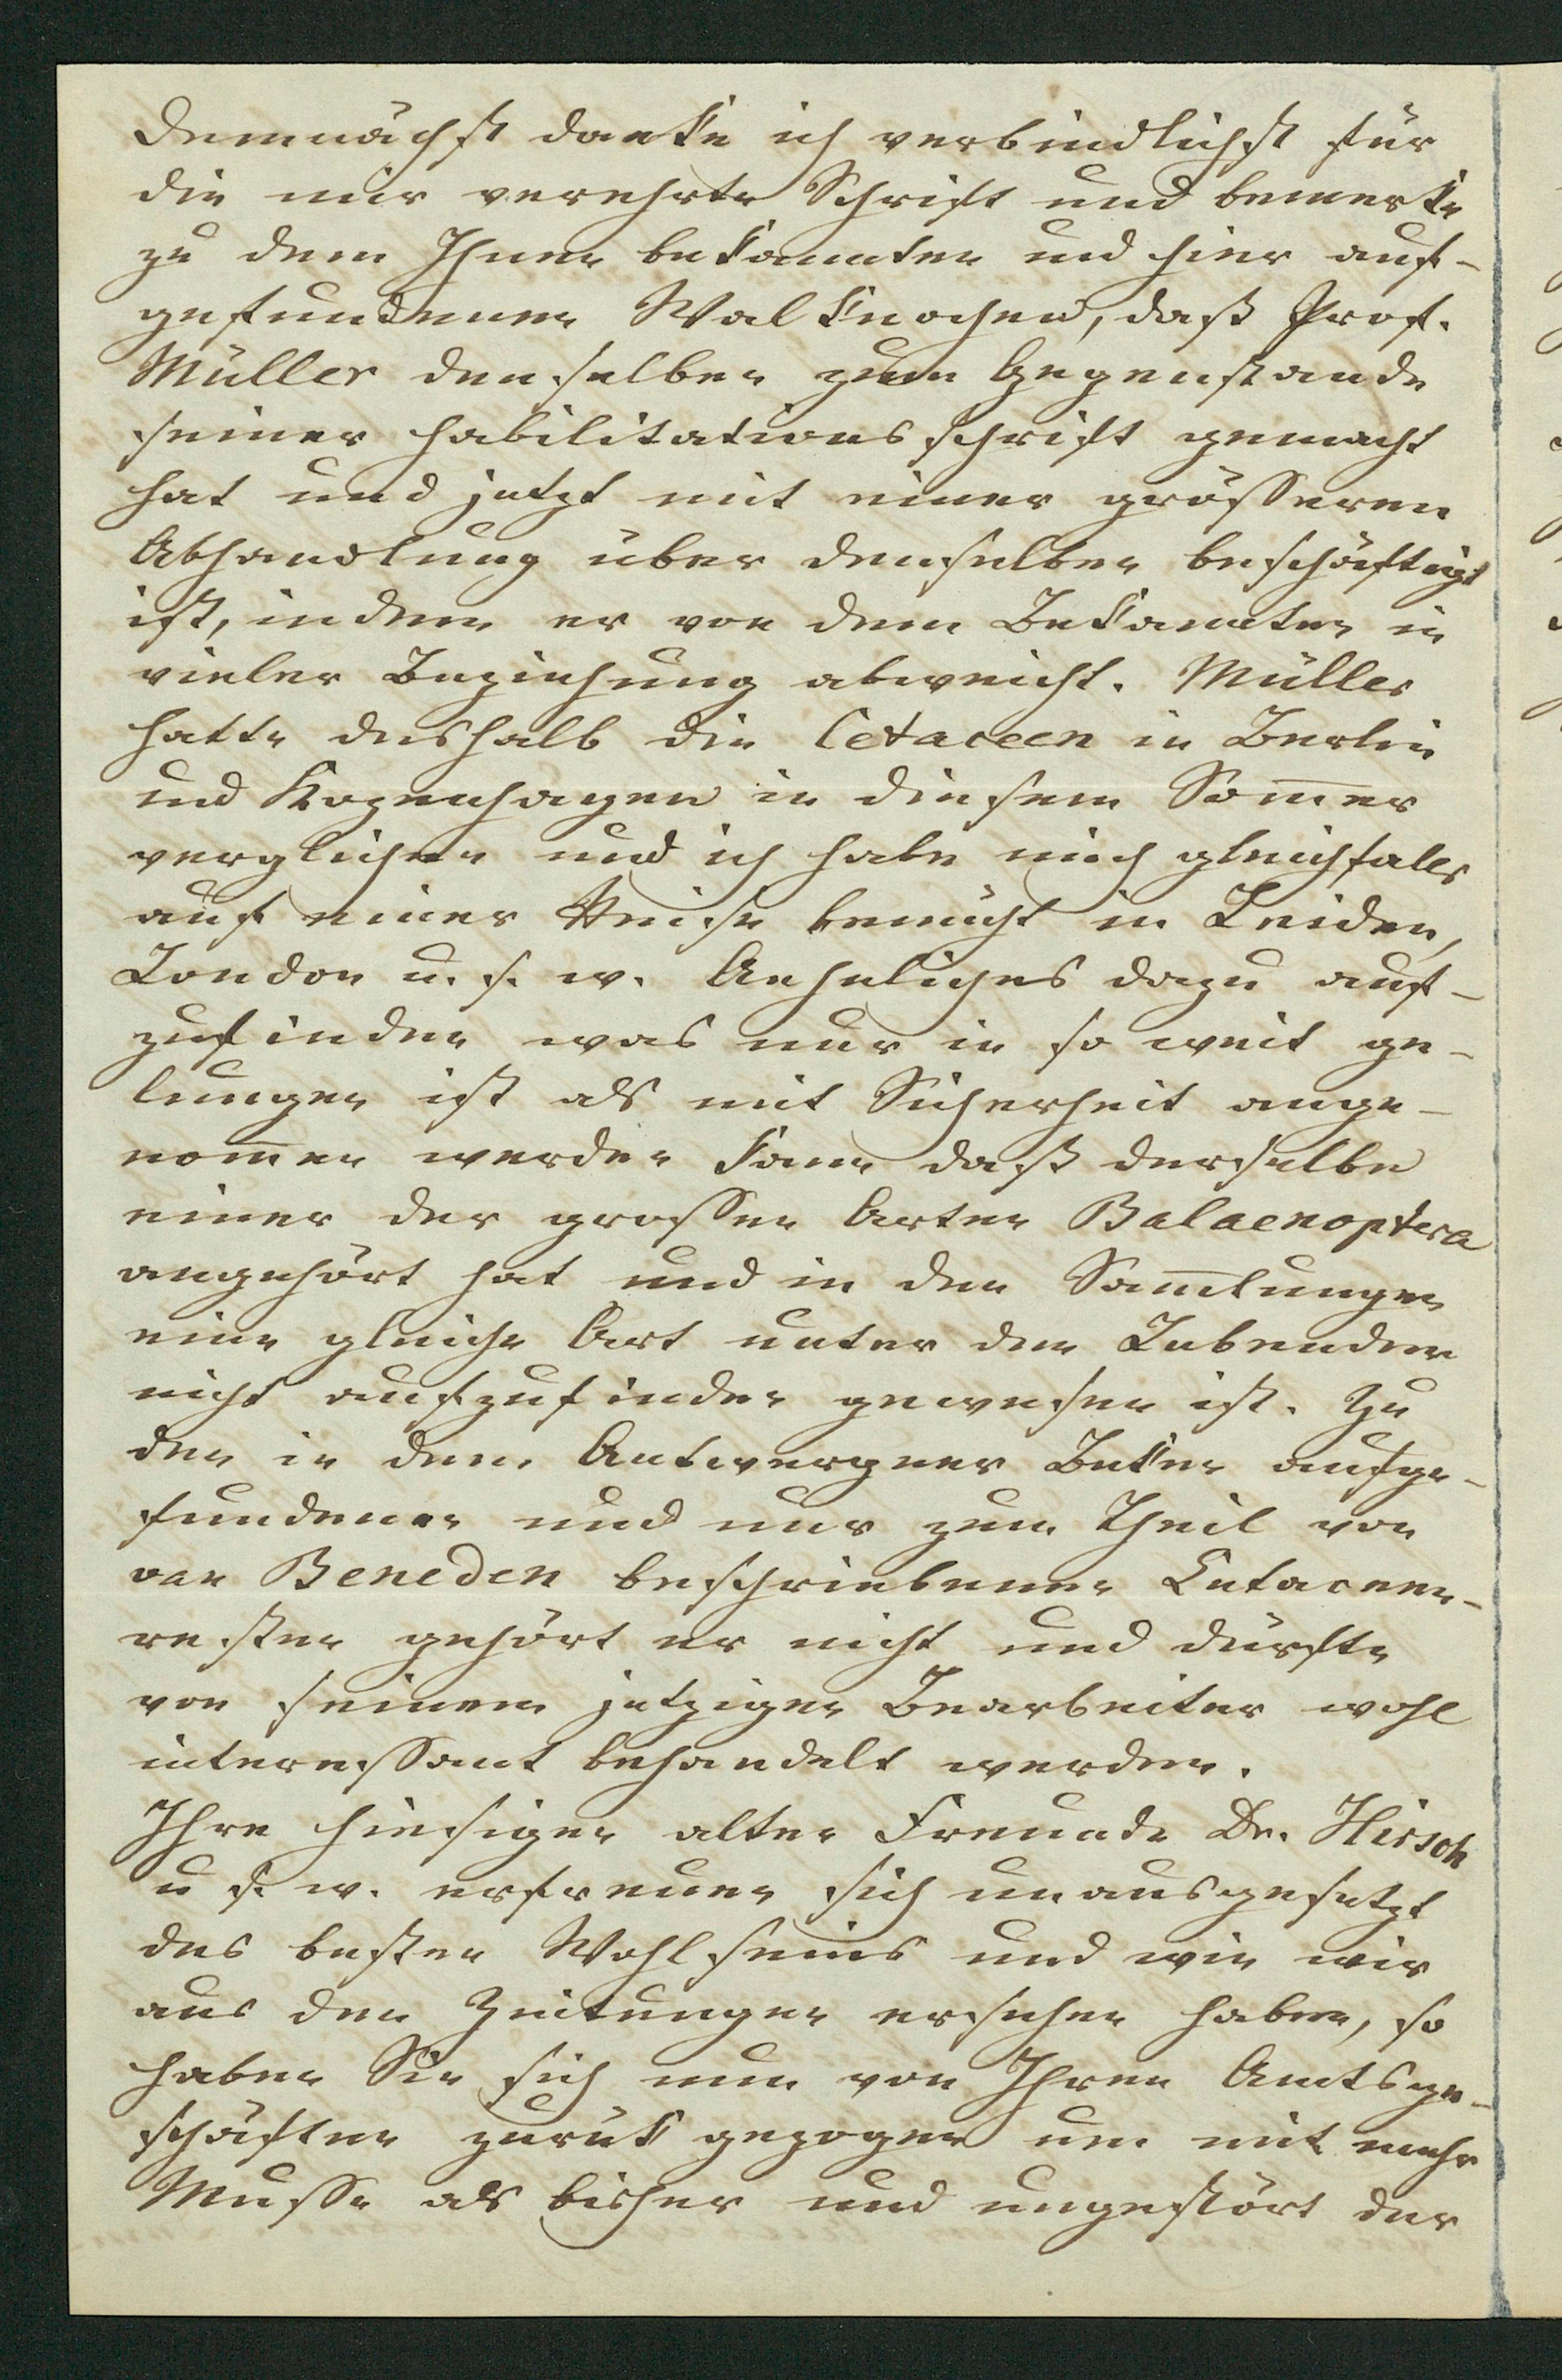 Demnächst danke ich verbindlichst für
die mir verehrte Schrift und bemerke
zu dem Ihnen bekannten und hier auf-
gefundenen Walknochen, daß Prof.
Müller denselben zum Gegenstande
seiner Habilitationsschrift gemacht
hat und jetzt mit einer größeren
Abhandlung über denselben beschäftigt
ist, indem er von dem Bekannten in
vieler Beziehung abweicht. Müller
hatte deshalb die Cetaceen in Berlin
und Kopenhagen in diesem Som̅er
verglichen und ich habe mich gleichfalls
auf einer Reise bemüht in Leiden,
London u. s. w. Aehnliches dazu auf-
zufinden was nur in so weit ge-
lungen ist als mit Sicherheit ange-
nom̅en werden kann daß derselbe
einer der grossen Arten Balaenoptera
angehört hat und in den Sam̅lungen
eine gleiche Art unter den Lebenden
nicht aufzufinden gewesen ist. Zu
den in dem Antwerpner Beken aufge-
fundenen und nur zum Theil von
van Beneden beschriebenen Cetaceen-
resten gehört er nicht und dürfte
von seinem jetzigen Bearbeiter wohl
interessant behandelt werden.
Ihre hiesigen alten Freunde Dr. Hirsch
u s. w. erfreuen sich unausgesetzt
des besten Wohlseins und wie wir
aus den Zeitungen ersehen haben, so
haben Sie sich nun von Ihren Amtsge-
schäften zurük gezogen um mit mehr
Musse als bisher und ungestört der